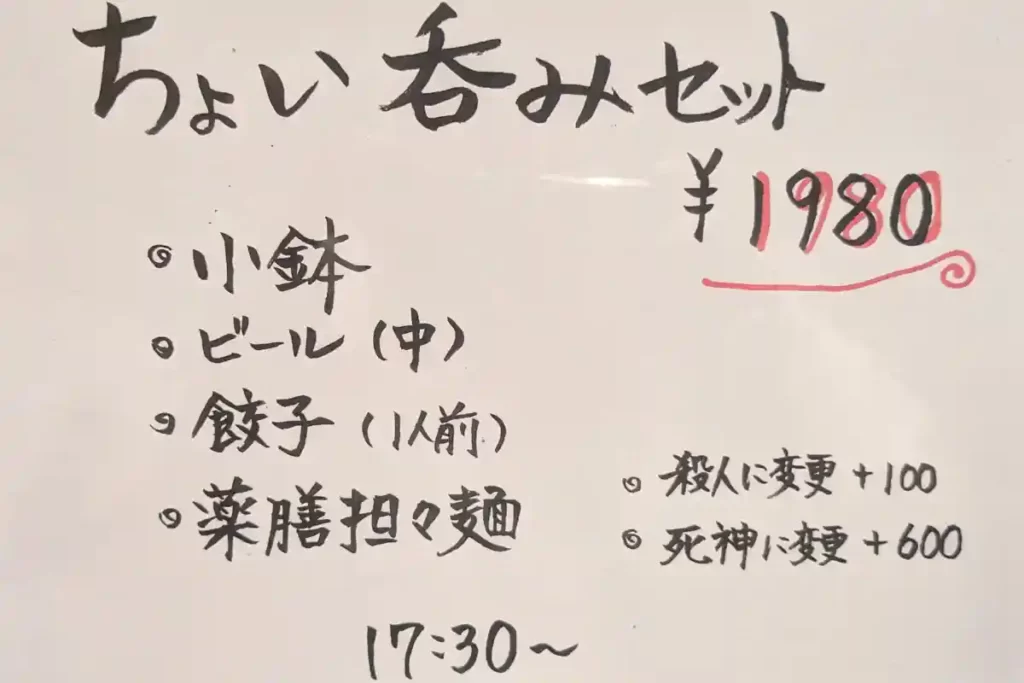 ちょい呑みセット
¥1980
◎小鉢
◎ビール(中)
◎餃子(1人前)
◎薬膳担々麺
◎殺人に変更+100
◎死神に変更+600
17:30~